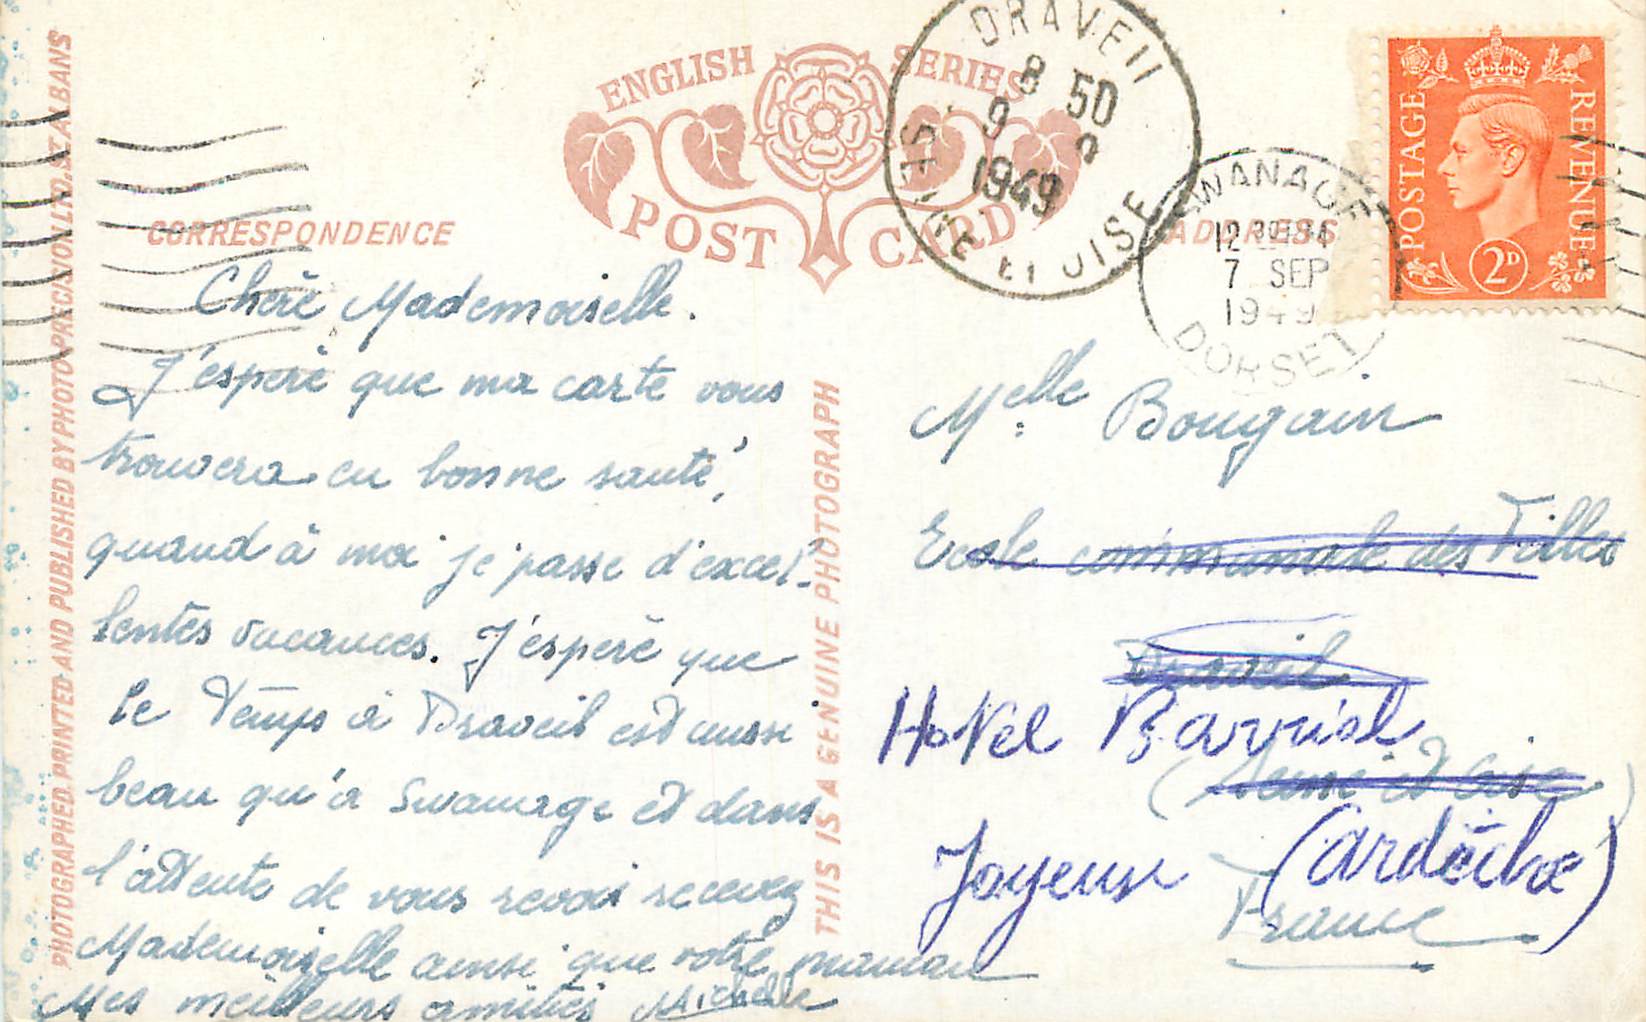 ENGLISH SERIES
POST CARD
CORRESPONDENCE
ADDRESS
DRAVEIL
8 50
9 9
1949
SEINE ET OISE
SWANAGE
12 30 PM
7 SEP
1949
DORSET
POSTAGE
REVENUE
2D
PHOTOGRAPHED, PRINTED AND PUBLISHED BY PHOTO PRECISION LTD. ST. ALBANS
THIS IS A GENUINE PHOTOGRAPH
Chère Mademoiselle.
J'éspère que ma carte vous
trouvera en bonne santé,
quand à moi je passe d'excel-
lentes vacances. J'éspère que
le temps à Draveil est aussi
beau qu'à Swanage et dans
l'attente de vous revoir recevez
Mademoiselle ainsi que votre maman
Mes meilleurs amitiés Michelle
Melle Bougain
Ecole communale des Filles
Draveil
Hotel Barrial
(Seine et Oise)
Joyeuse (Ardèche)
France